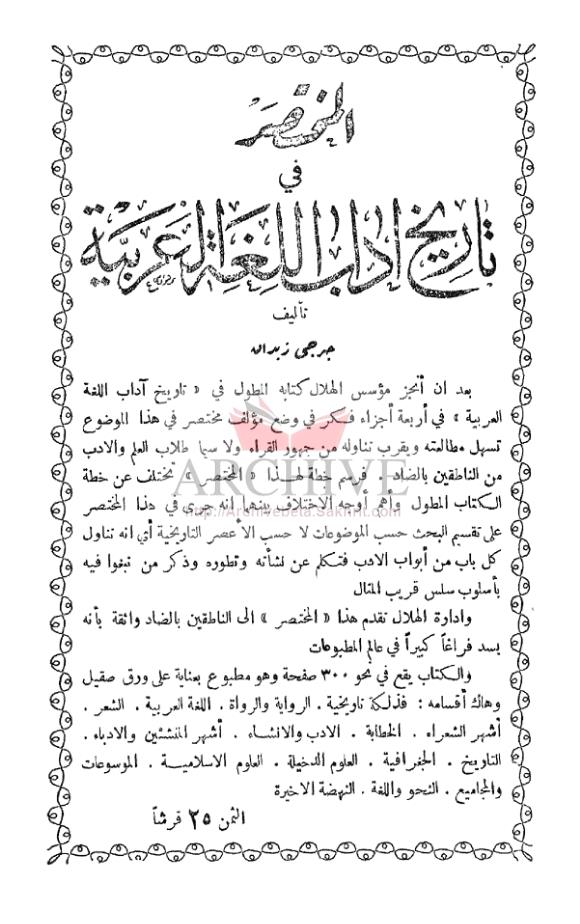 المختصر
في
تاريخ اداب اللغة العربية
تأليف
جرجي زيدان
بعد ان أنجز مؤسس الهلال كتابه المطول في « تاريخ آداب اللغة
العربية » في أربعة أجزاء فكر في وضع مؤلف مختصر في هذا الموضوع
تسهل مطالعته ويقرب تناوله من جمهور القراء ولا سيما طلاب العلم والادب
من الناطقين بالضاد . فرسم خطة لهذا « المختصر » تختلف عن خطة
ARCHIVE
الكتاب المطول وأهم أوجه الاختلاف بينهما انه جرى في هذا المختصر
http://Archivebeta.Sakhrit.com
على تقسيم البحث حسب الموضوعات لا حسب الأعصر التاريخية أي انه تناول
كل باب من أبواب الادب فتكلم عن نشأته وتطوره وذكر من نبغوا فيه
بأسلوب سلس قريب المنال
وادارة الهلال تقدم هذا « المختصر » الى الناطقين بالضاد واثقة بأنه
يسد فراغاً كبيراً في عالم المطبوعات
والكتاب يقع في نحو ٣٠٠ صفحة وهو مطبوع بعناية على ورق صقيل
وهاك أقسامه : فذلكة تاريخية . الرواية والرواة . اللغة العربية . الشعر .
أشهر الشعراء . الخطابة . الادب والانشاء . أشهر المنشئين والادباء .
التاريخ . الجغرافية . العلوم الدخيلة . العلوم الاسلامية . الموسوعات
والمجاميع . النحو واللغة . النهضة الاخيرة
الثمن ٢٥ قرشاً